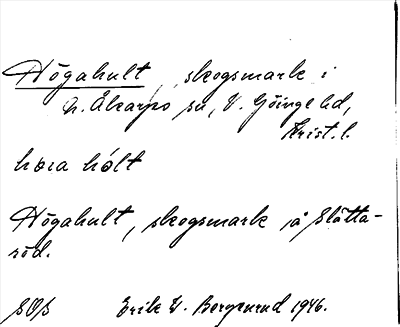 Högahult, skogsmark i
N. Åkarps sn, V. Göinge hd,
Krist. l.
høʒa hólt
Högahult, skogsmark på Slätta-
röd.
SOS Erik W. Bergstrand 1946.